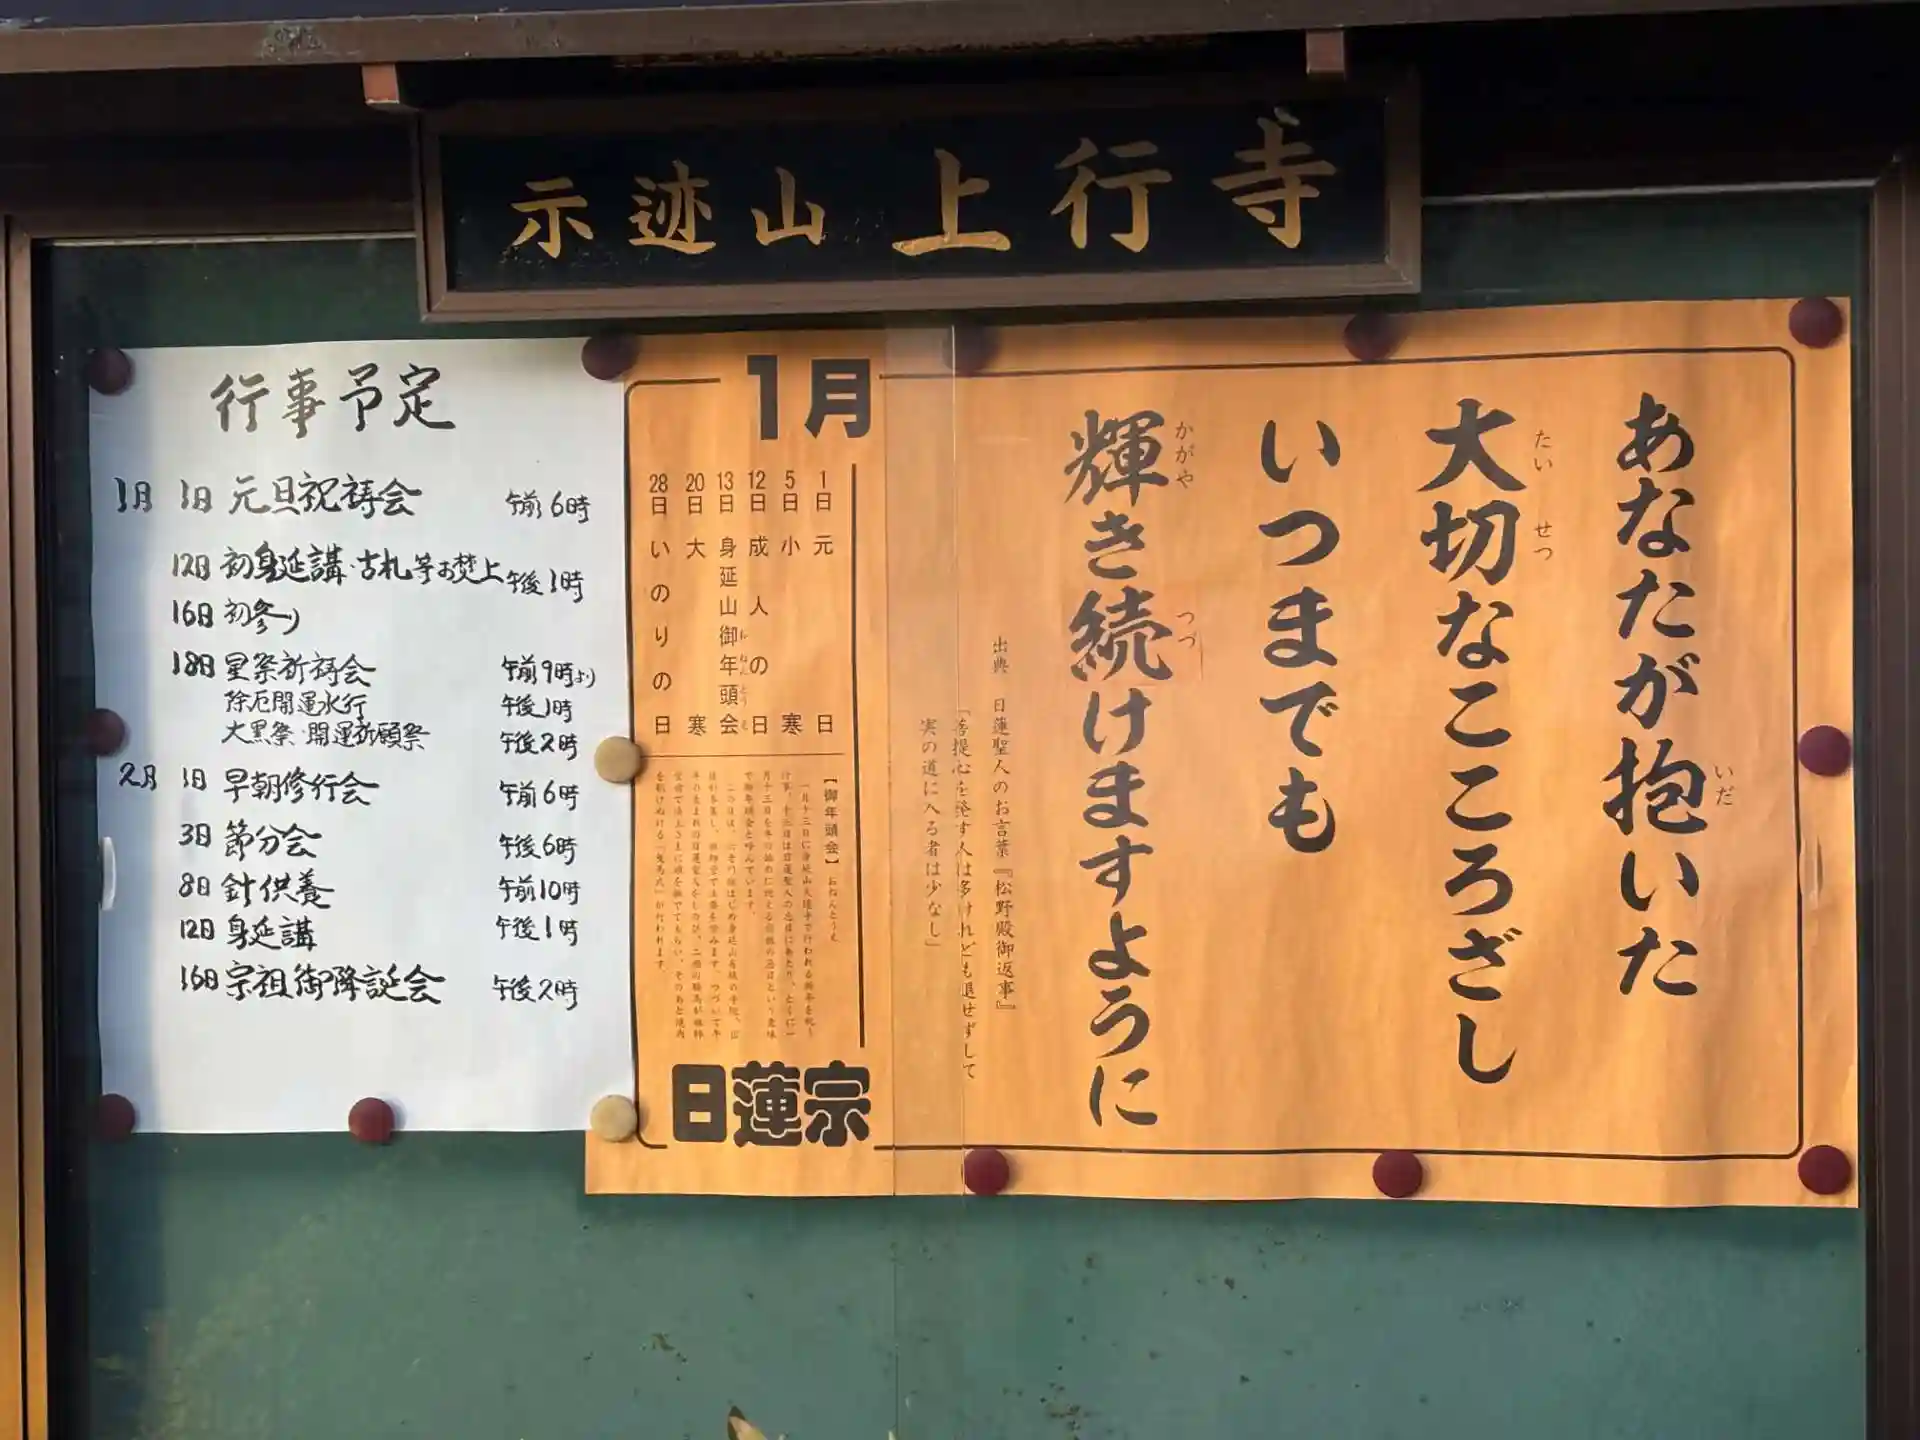 示迹山 上行寺
行事予定
1月 1日 元旦祝祷会 午前6時
12日 初身延講・古札等お焚上 午後1時
16日 初参り
18日 星祭祈祷会 午前9時より
除厄開運水行 午後1時
大黒祭・開運祈願祭 午後2時
2月 1日 早朝修行会 午前6時
3日 節分会 午後6時
8日 針供養 午前10時
12日 身延講 午後1時
16日 宗祖御降誕会 午後2時
あなたが抱いた
いだ
大切なこころざし
たい せつ
いつまでも
輝き続けますように
かがや つづ
出典 日蓮聖人のお言葉『松野殿御返事』
「菩提心を発す人は多けれども退せずして
実の道に入る者は少なし」
1月
1日 元日
5日 小寒
12日 成人の日
13日 身延山御年頭会
に ねんとう え
20日 大寒
28日 いのりの日
【御年頭会】 おねんとうえ
日蓮宗